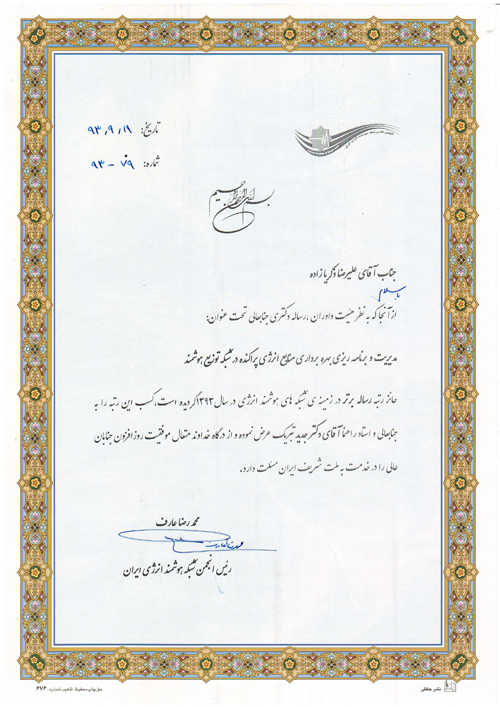 تاریخ: ۹۳,۹,۱۹
شماره: ۹۳-۷۹
بسم الله الرحمن الرحیم
جناب آقای علیرضا ذکریا زاده
با سلام
از آنجا که به نظر هیئت داوران ،رساله دکتری جنابعالی تحت عنوان:
مدیریت و برنامه ریزی بهره برداری منابع انرژی پراکنده در شبکه توزیع هوشمند
حائز رتبه رساله برتر در زمینه ی شبکه های هوشمند انرژی در سال ۱۳۹۳ گردیده است،کسب این رتبه را به
جنابعالی و استاد راهنما آقای دکتر جدید تبریک عرض نموده و از درگاه خداوند متعال موفقیت روز افزون جنابان
عالی را در خدمت به ملت شریف ایران مسئلت دارد.
محمد رضا عارف
رئیس انجمن شبکه هوشمند انرژی ایران
نشر حافظی
حق چاپ محفوظ تذهیب شماره: ۶۷۶